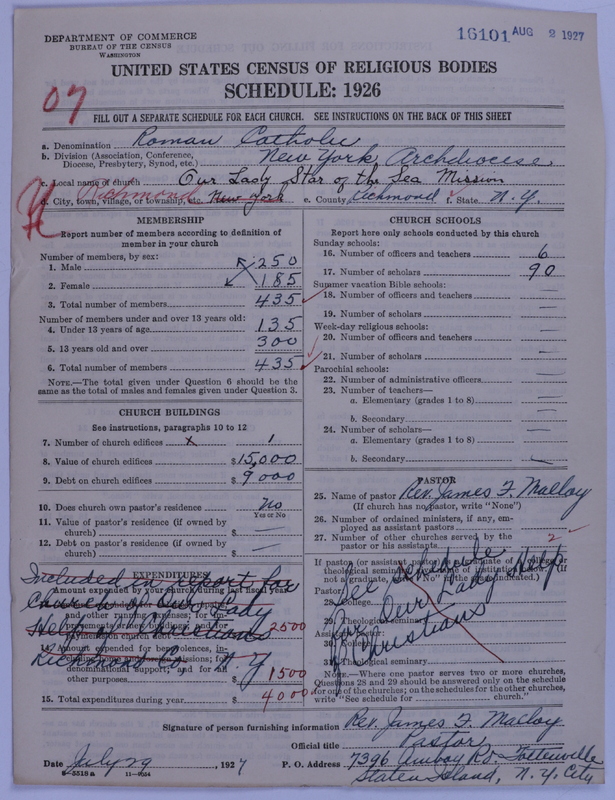 DEPARTMENT OF COMMERCE
BUREAU OF THE CENSUS
WASHINGTON
16101 AUG 2 1927
UNITED STATES CENSUS OF RELIGIOUS BODIES
SCHEDULE: 1926
07
FILL OUT A SEPARATE SCHEDULE FOR EACH CHURCH. SEE INSTRUCTIONS ON THE BACK OF THIS SHEET
a. Denomination Roman Catholic
b. Division (Association, Conference, Diocese, Presbytery, Synod, etc.) New York Archdiocese
c. Local name of church Our Lady Star of the Sea Mission
Richmond
d. City, town, village, or township, etc. New York e. County Richmond f. State N.Y.
MEMBERSHIP
Report number of members according to definition of member in your church
Number of members, by sex:
1. Male 250
2. Female 185
3. Total number of members 435
Number of members under and over 13 years old:
4. Under 13 years of age 135
5. 13 years old and over 300
6. Total number of members 435
NOTE.—The total given under Question 6 should be the same as the total of males and females given under Question 3.
CHURCH BUILDINGS
See instructions, paragraphs 10 to 12
7. Number of church edifices x 1
8. Value of church edifices $15,000
9. Debt on church edifices $9000
10. Does church own pastor's residence? No
Yes or No
11. Value of pastor's residence (if owned by church) $
12. Debt on pastor's residence (if owned by church) $ —
EXPENDITURES
Amount expended by your church during last fiscal year
Included in report for
Church of Our Lady
Help of Christians
Richmond Co. N.Y
2500
1500
15. Total expenditures during year $ 4000
CHURCH SCHOOLS
Report here only schools conducted by this church
Sunday schools:
16. Number of officers and teachers 6
17. Number of scholars 90
Summer vacation Bible schools:
18. Number of officers and teachers —
19. Number of scholars —
Week-day religious schools:
20. Number of officers and teachers —
21. Number of scholars —
Parochial schools:
22. Number of administrative officers —
23. Number of teachers—
a. Elementary (grades 1 to 8) —
b. Secondary —
24. Number of scholars—
a. Elementary (grades 1 to 8) —
b. Secondary —
PASTOR
25. Name of pastor Rev. James F. Malloy
(If church has no pastor, write "None")
26. Number of ordained ministers, if any, employed as assistant pastors
27. Number of other churches served by the pastor or his assistants 2
See schedule
for Our Lady Help
Christians
NOTE.—Where one pastor serves two or more churches, Questions 28 and 29 should be answered only on the schedule for one of the churches; on the schedules for the other churches, write "See schedule for church."
Signature of person furnishing information Rev. James F. Malloy
Official title Pastor
Date July 29, 1927 P. O. Address 7396 Amboy Rd. Tottenville
Staten Island, N.Y. City
8—5518a 11—9054